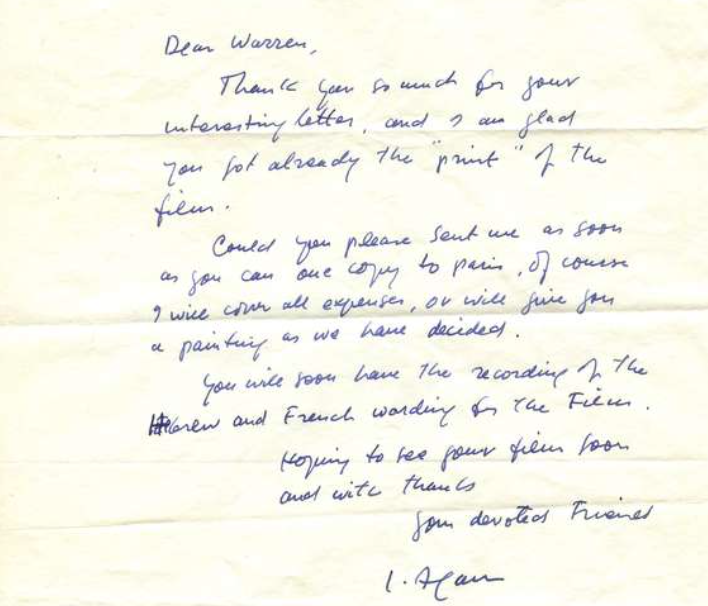 Dear Warren,
Thank you so much for your
interesting letter, and I am glad
you got already the "print" of the
film.
Could you please sent me as soon
as you can one copy to paris, of course
I will cover all expenses, or will give you
a painting as we have decided.
you will soon have the recording of the
Hebrew and French wording for the Film.
Hoping to see your film soon
and with thanks
your devoted Friend